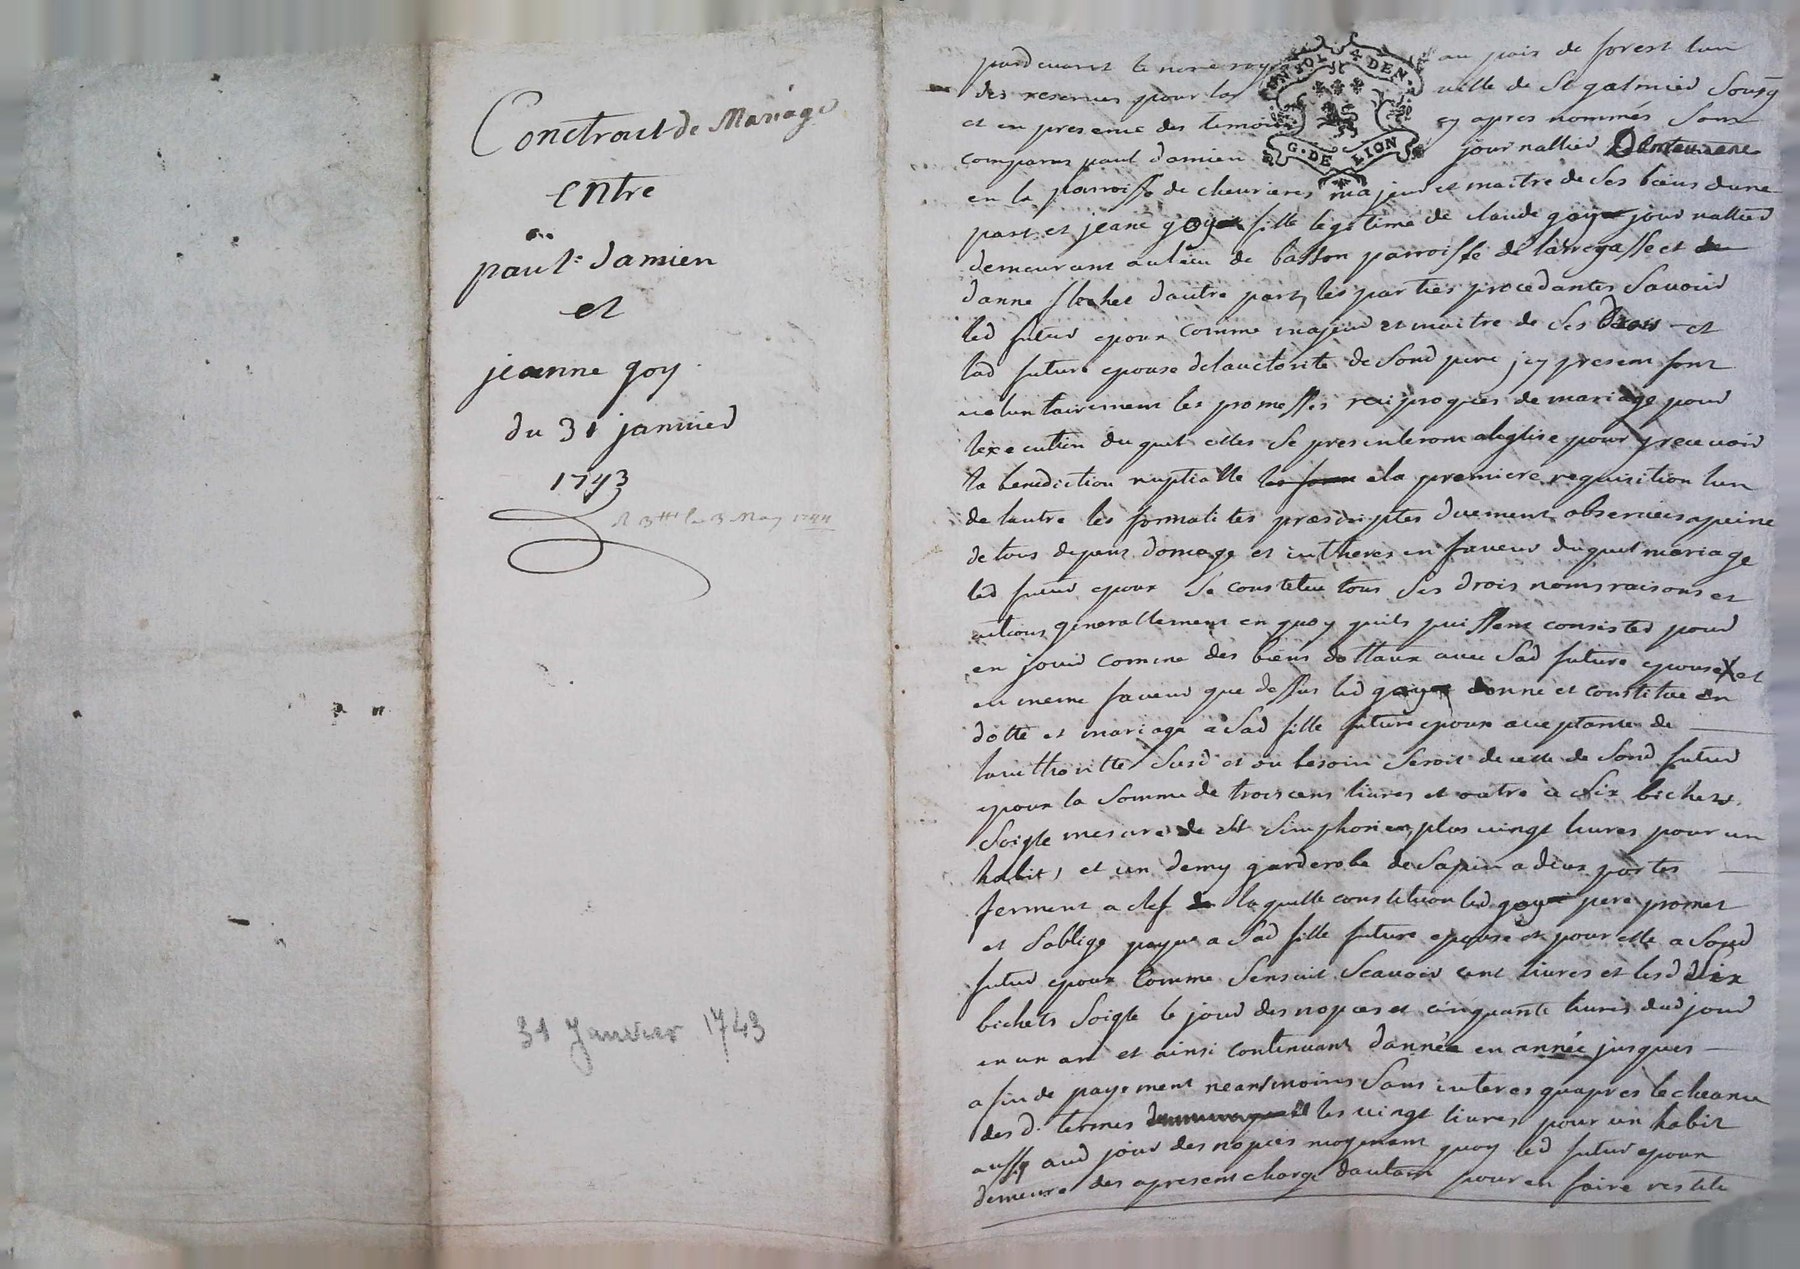 Conctract de Mariage
entre
paul damien
et
jeanne goy
du 31 janvier
1743
31 Janvier 1743
pard evant le no.re roy au pais de forest lun
UN SOL 4 DEN.
G. DE LION
des reserves pour la ville de St galmier sousg
et en presence des temoins cy apres nommés sont
comparus paul damien journallier Demeurent
en la parroisse de chevrieres majeur et maitre de ses biens dune
part et jeane goy fille legitime de claude goy journallier
demeurant au lieu de basson parroisse de larregasse et de
danne flechet dautre part, les parties procedantes savoir
led futur epoux comme majeur et maitre de ses Drois et
lad future epouse delauctorité de sond pere jcy present font
volontairement les promesses reciproques de mariage pour
lexecution duquel elles se presenteront aleglise pour y recevoir
la benediction nuptialle ala premiere requisition lun
de lautre les formalités prescriptes duement observées a peine
de tous depens domage et inthérès en faveur duquel mariage
led futur epoux se constitue tous ses drois noms raisons et
actions generallement en quoy quils puissent consister pour
en jouir comme des biens dottaux avec sad future epouse X et
en meme faveur que dessus led goy donne et constitue en
dotte et mariage a sad fille future epoux acceptante de
lauthoritté susd et ou besoin seroit de celle de sond futur
epoux la somme de trois cens livres et outre ce six bichets
soigle mesure de St simphorien, plus vingt livres pour un
habit, et un demy garderobe de sapin a deux portes
ferment a clef laquelle constitution led goy pere promet
et soblige payer a sad fille future epouse et pour elle a sond
futur epoux comme sensuit scavoir cent livres et lesd six
bichets soigle le jour des nopces et cinquante livres dud jour
en un an et ainsi continuant dannée en année jusques
a fin de payement neantmoins sans interes quapres lecheance
des d. termes les vingt livres pour un habit
aussy aud jour des nopces moyenant quoy led futur epoux
demeure des apresent chargé dautant pour en faire restitu